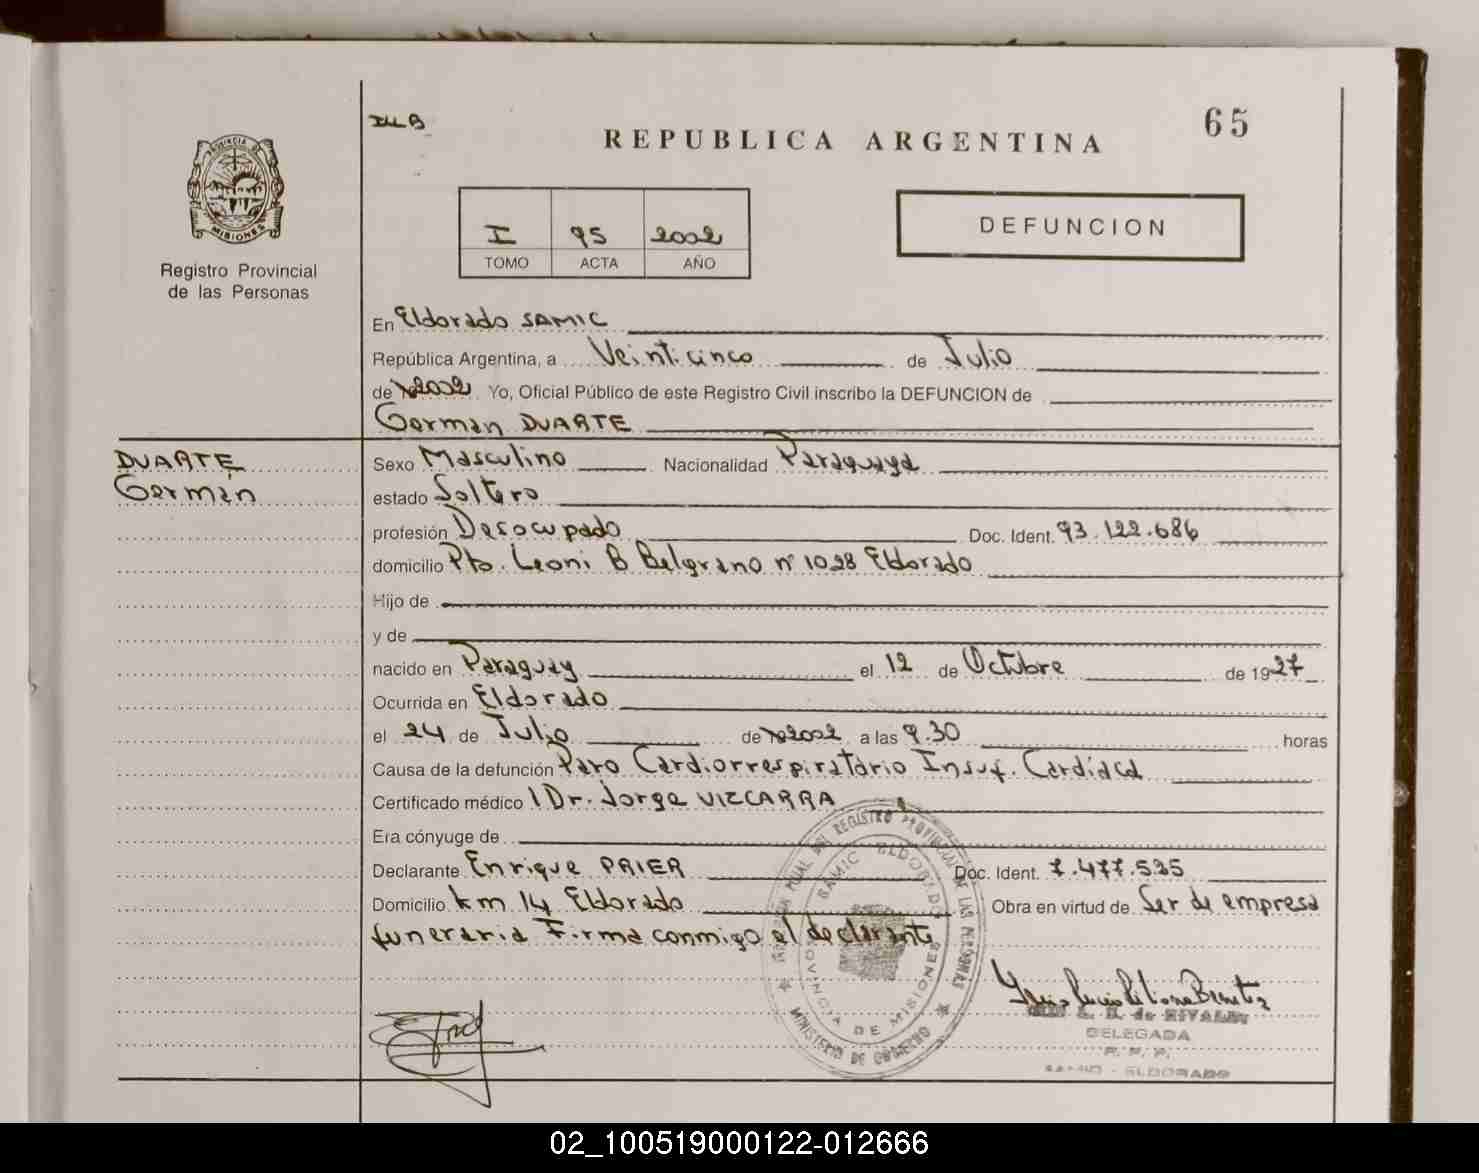 ILB
65
REPUBLICA ARGENTINA
PROVINCIA D
MISIONES
Registro Provincial
de las Personas
I 95 2002
TOMO ACTA AÑO
DEFUNCION
En Eldorado SAMIC
República Argentina, a Veinticinco de Julio
de 2002 Yo, Oficial Público de este Registro Civil inscribo la DEFUNCION de
German DUARTE
DUARTE
Germán
Sexo Masculino Nacionalidad Paraguaya
estado Soltero
profesión Desocupado Doc. Ident. 93.122.686
domicilio Pto. Leoni B Belgrano nº 1028 Eldorado
Hijo de
y de
nacido en Paraguay el 12 de Octubre de 1927
Ocurrida en Eldorado
el 24 de Julio de 2002 a las 9.30 horas
Causa de la defunción Paro Cardiorrespiratorio Insuf. Cardíaca
Certificado médico Dr. Jorge VIZCARRA
Era cónyuge de
Declarante Enrique PRIER Doc. Ident. 7.477.535
Domicilio Km 14 Eldorado Obra en virtud de Ser de empresa
funeraria Firma conmigo el declarante
DEL REGISTRO PROVINCIAL DE LAS PERSONAS
SAMIC ELDORADO
PROVINCIA DE MISIONES
MINISTERIO DE GOBIERNO
de RIVALDI
DELEGADA
R. P. P.
SAMIC - ELDORADO
02_100519000122-012666